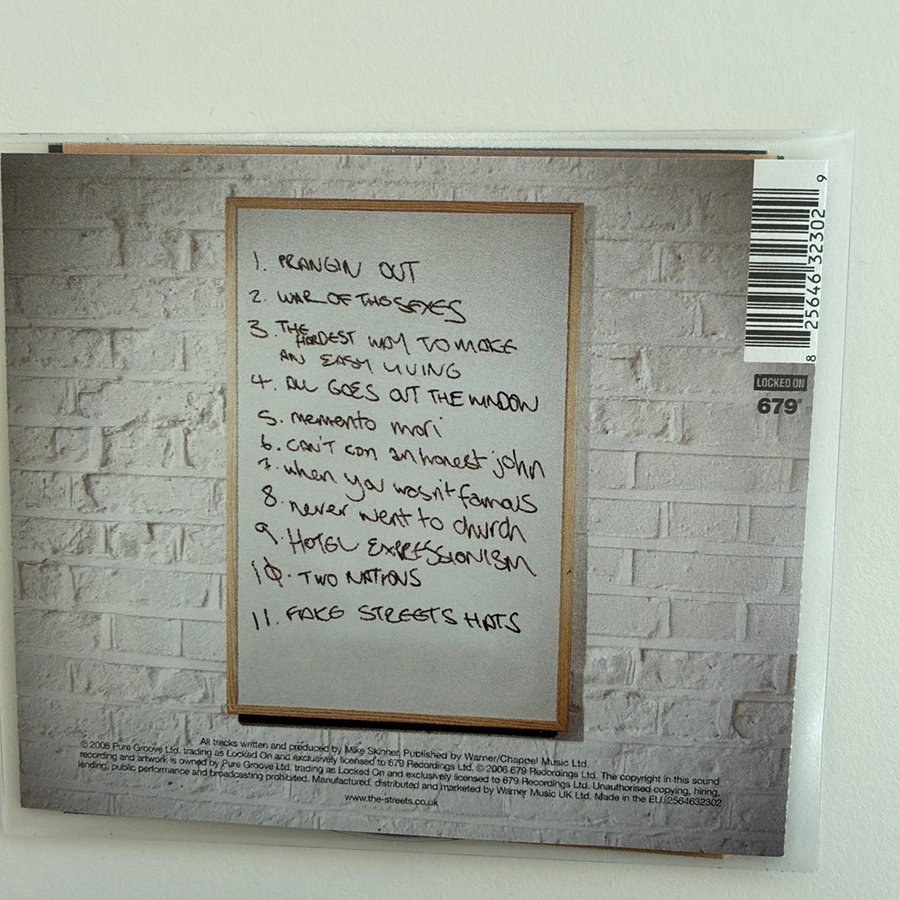 1. PRANGIN OUT
2. WAR OF THE SEXES
3. THE HARDEST WAY TO MAKE
AN EASY LIVING
4. ALL GOES OUT THE WINDOW
5. memento mori
6. CAN'T con an honest john
7. when you wasn't famous
8. never went to church
9. HOTEL EXPRESSIONISM
10. TWO NATIONS
11. FAKE STREETS HATS
8 25646 32302 9
LOCKED ON
679
All tracks written and produced by Mike Skinner. Published by Warner/Chappel Music Ltd.
© 2006 Pure Groove Ltd. trading as Locked On and exclusively licensed to 679 Recordings Ltd. © 2006 679 Recordings Ltd. The copyright in this sound
recording and artwork is owned by Pure Groove Ltd. trading as Locked On and exclusively licensed to 679 Recordings Ltd. Unauthorised copying, hiring,
lending, public performance and broadcasting prohibited. Manufactured, distributed and marketed by Warner Music UK Ltd. Made in the EU. 2564632302
www.the-streets.co.uk